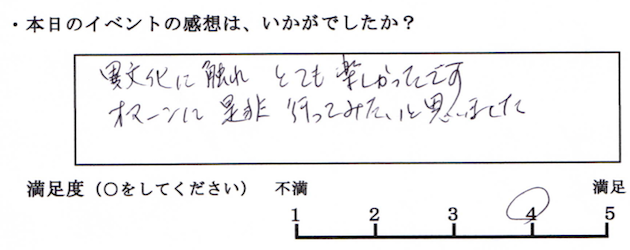 ・本日のイベントの感想は、いかがでしたか?
異文化に触れ とても楽しかったです
オマーンに是非 行ってみたいと思いました
満足度(○をしてください) 不満 満足
1 2 3 4 5